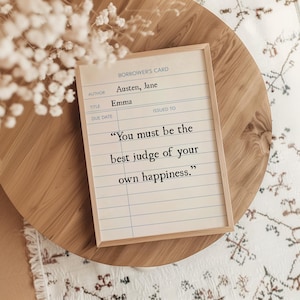 BORROWER'S CARD
AUTHOR Austen, Jane
TITLE Emma
DUE DATE ISSUED TO
“You must be the
best judge of your
own happiness.”